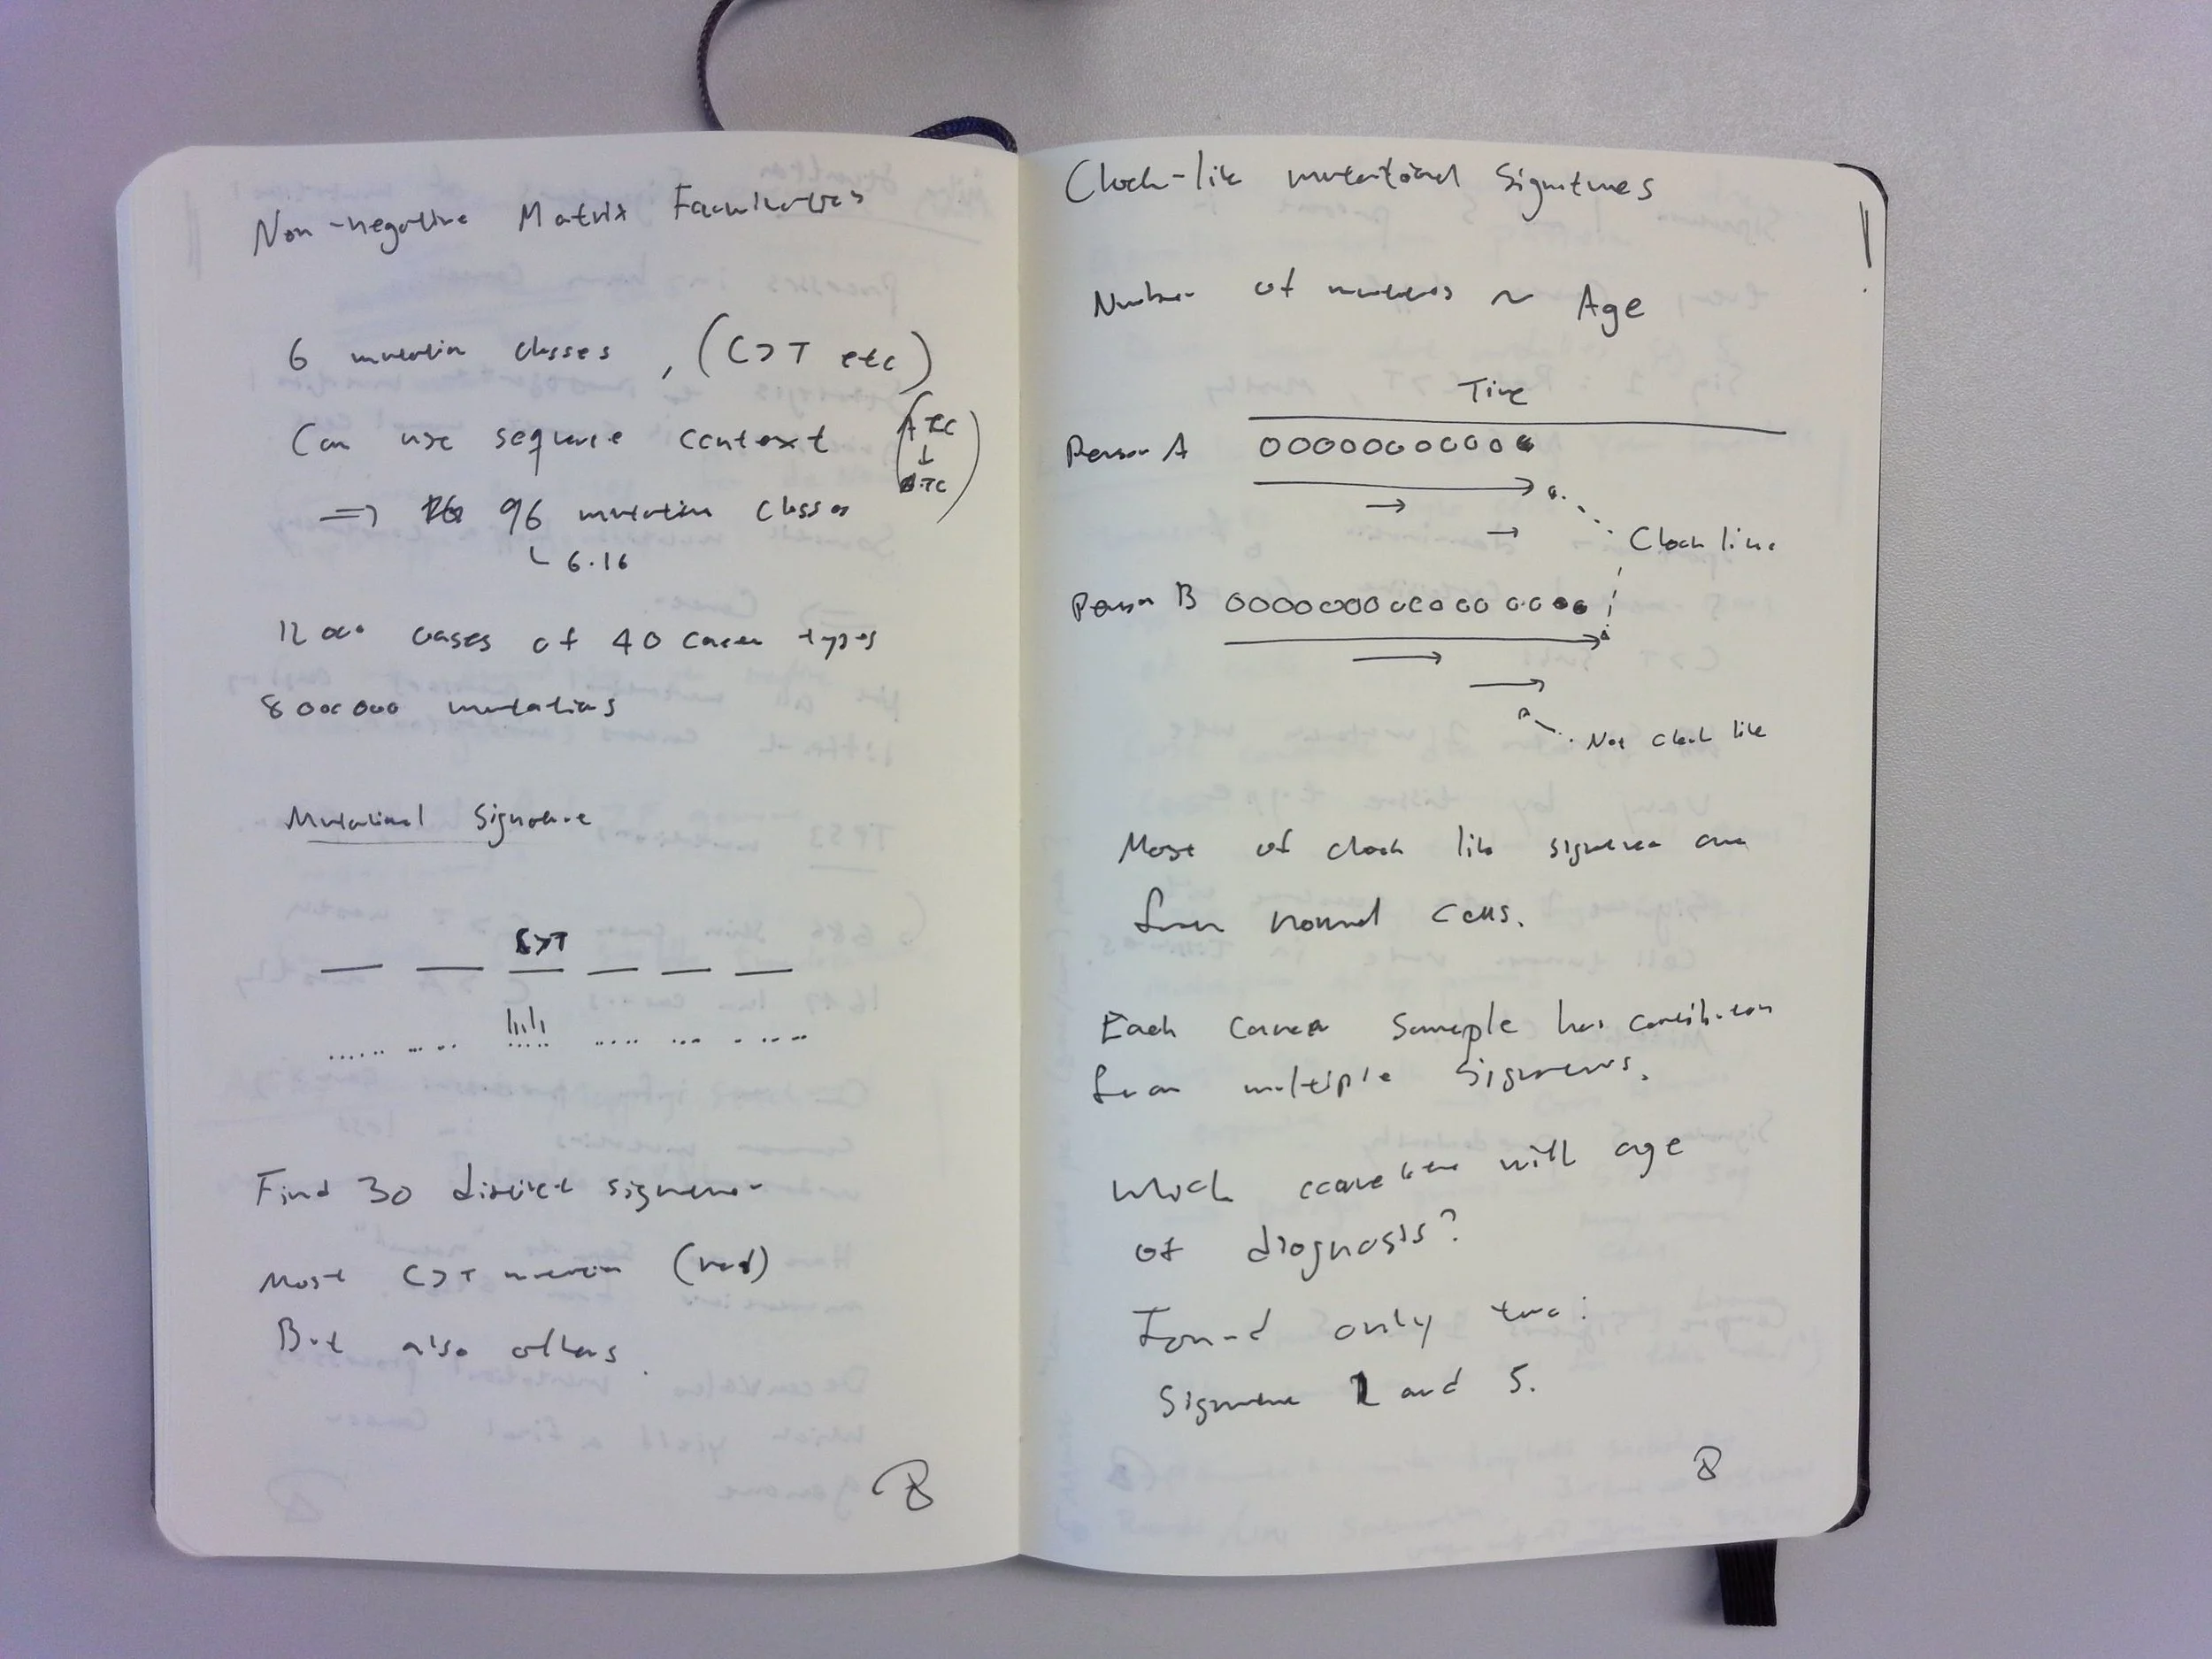 Non-negative Matrix Factorization
6 mutation classes, (C>T etc)
Can use sequence context
=> 96 mutation classes
6.16
12000 cases of 40 cancer types
8000000 mutations
Mutational Signature
C>T
Find 30 distinct signatures
Most C>T mutation (red)
But also others.
Clock-like mutational Signatures
Number of mutations ~ Age
Time
Person A
Clock like
Person B
Not clock like
Most of clock like signatures are
from normal cells.
Each cancer sample has contribution
from multiple signatures.
Which correlate with age
of diagnosis?
Found only two:
Signature 1 and 5.